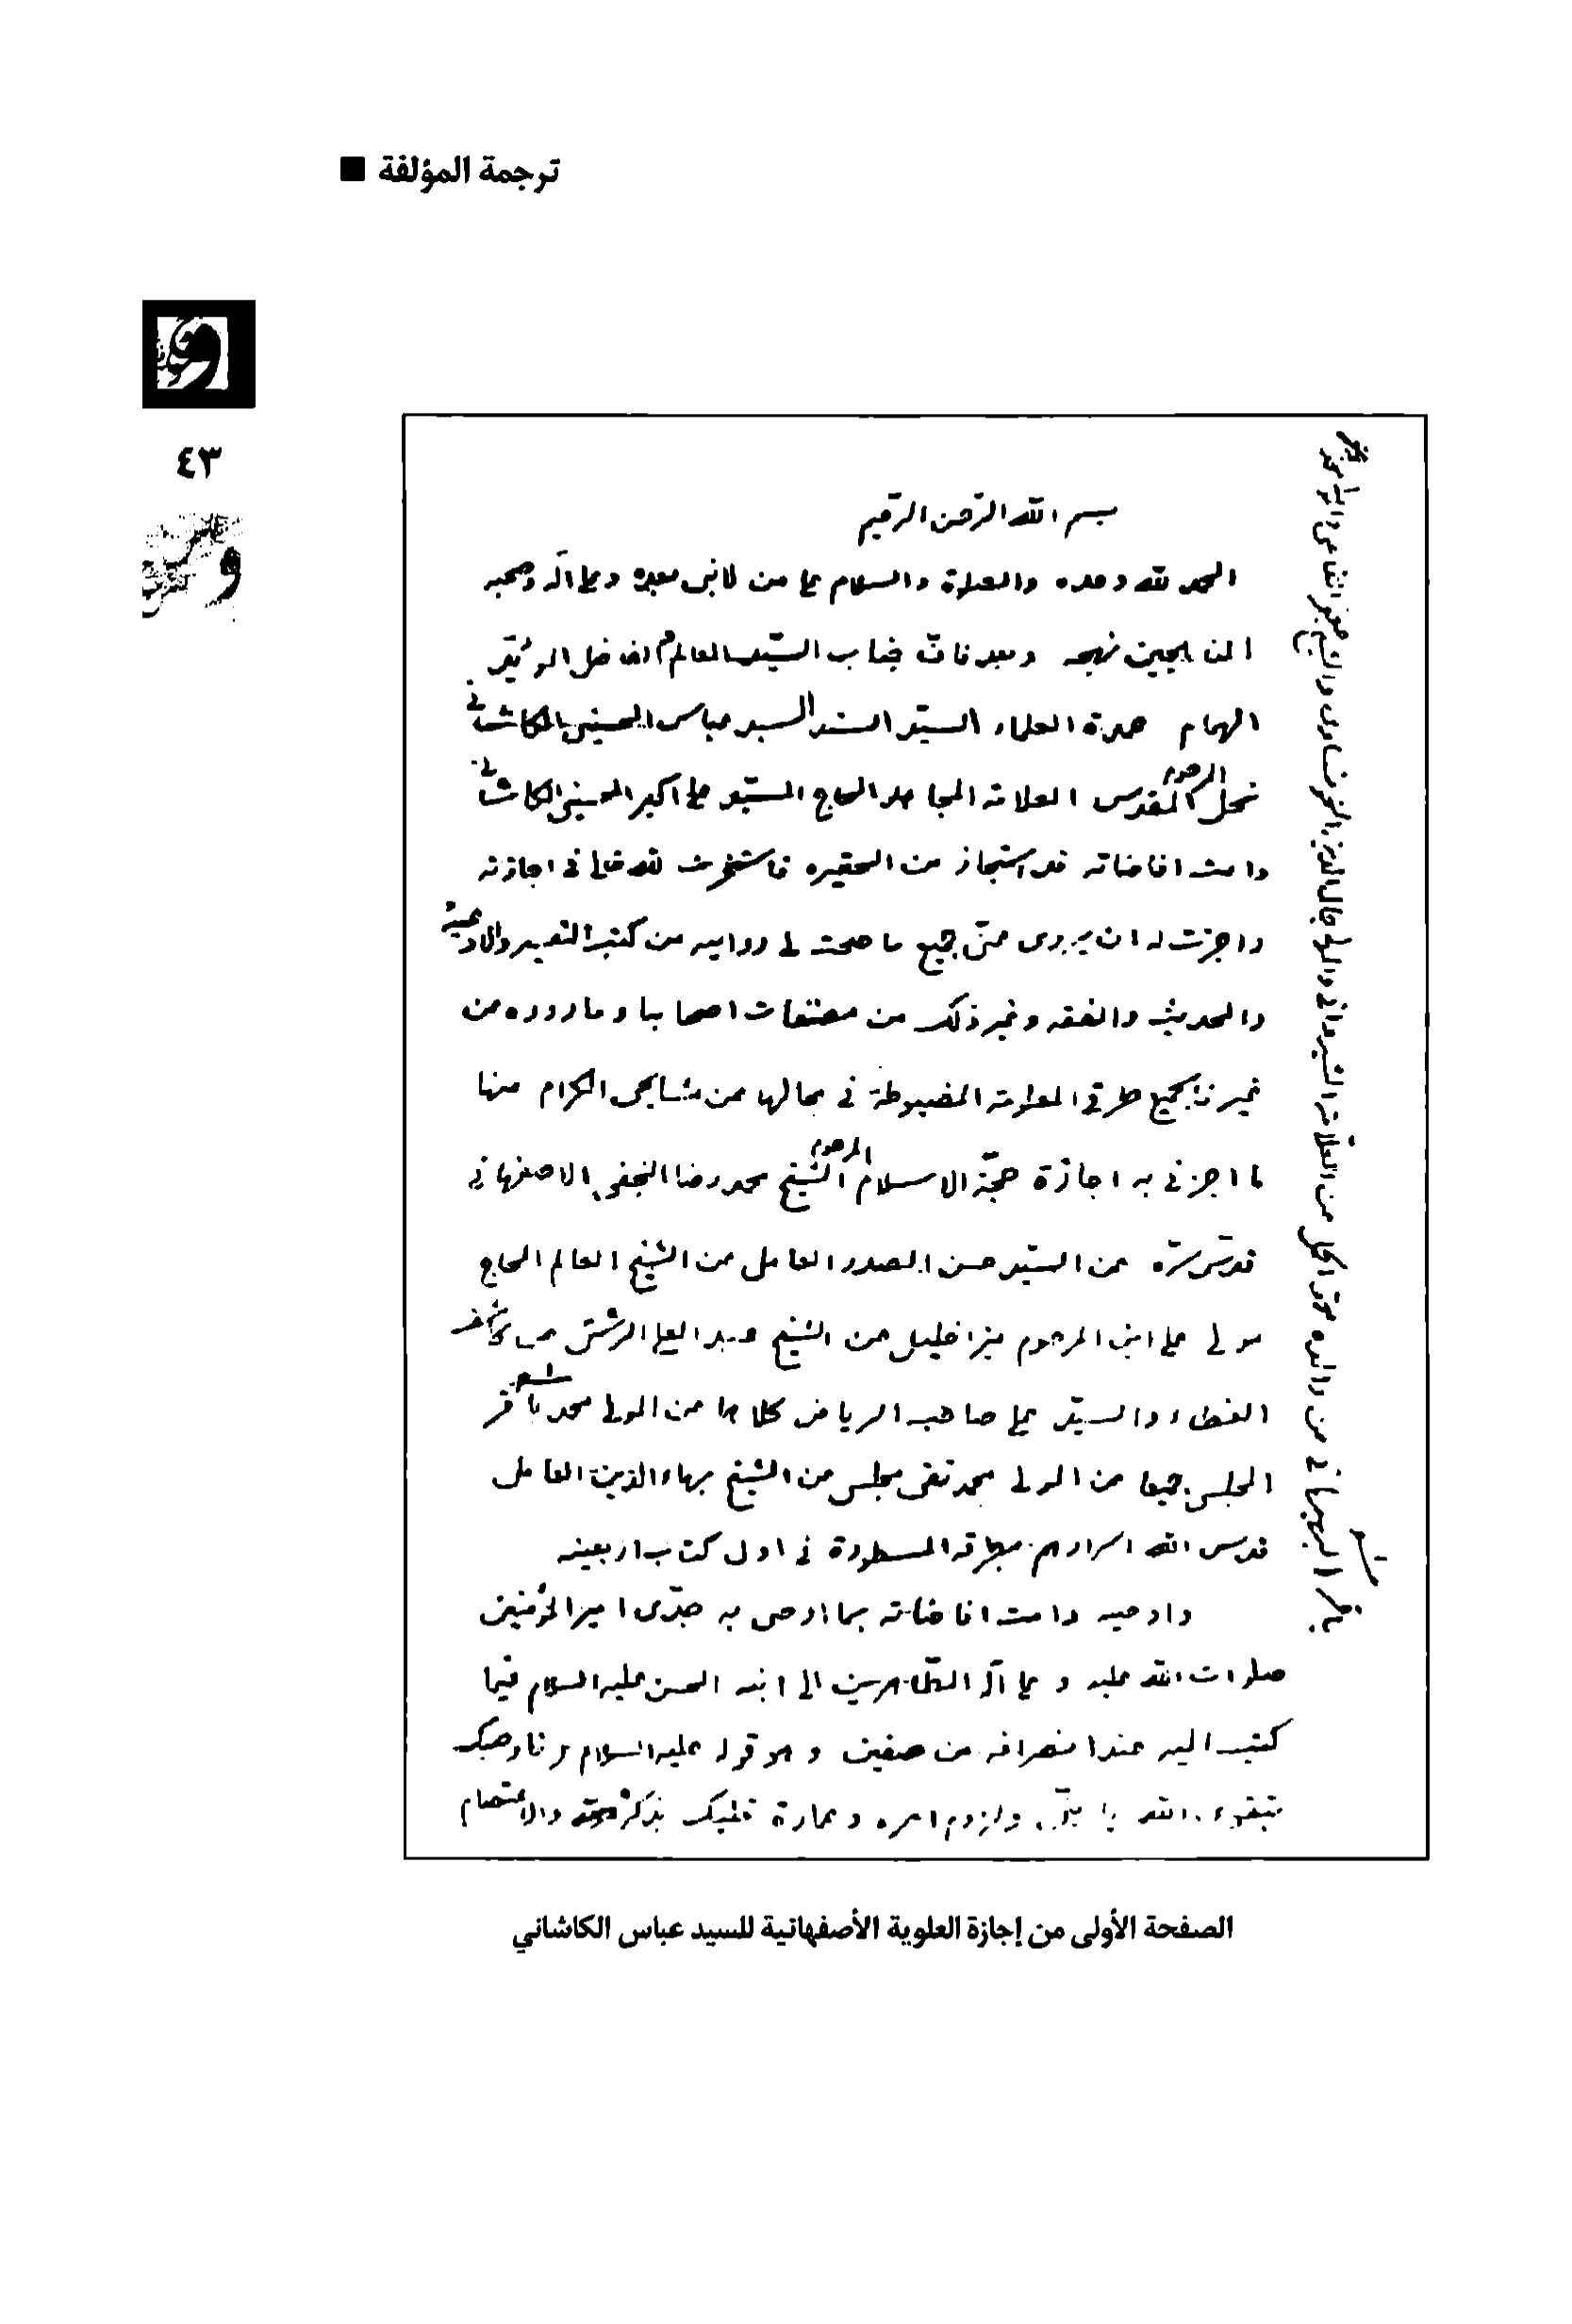 ترجمة المؤلفة
٤٣
بسم الله الرحمن الرحيم
الحمد لله وحده والصلوة والسلام على من لا نبي بعده وعلى آله وصحبه
الناهجين نهجه وبعد فان جناب السيد العالم الفاضل الموثق
الهمام عمدة العلماء السيد السند السيد عباس الحسيني الكاشاني
نجل المرحوم المقدس العلامة المجاهد الحاج السيد علي اكبر الحسيني الكاشاني
دامت افاضاته قد استجاز من الحقيره فاستخرت لله تعالى في اجازته
واجزت له ان يروى عني جميع ما صحت لي روايته من كتب التفسير والادعية
والحديث والفقه وغير ذلك من مصنفات اصحابنا وما رووه من
غيرنا بجميع طرقي المعلومة المضبوطة في محالها عن مشايخي الكرام منها
ما اجزني به اجازة حجة الاسلام المرحوم الشيخ محمد رضا النجفي الاصفهاني
قدس سره عن السيد حسن الصدر العاملي عن الشيخ العالم الحاج
مولى علي ابن المرحوم ميرزا خليل عن الشيخ عبد العلي الرشتي عن كاشف
الغطاء والسيد علي صاحب الرياض كلاهما عن المولى محمد باقر
المجلسي جميعا عن المولى محمد تقي مجلسي عن الشيخ بهاء الدين العاملي
قدس الله اسرارهم بطرقه المسطورة في اول كتاب اربعينه
واوصيه دامت افاضاته بما اوصى به جدّى امير المؤمنين
صلوات الله عليه و على آله الطاهرين الى ابنه الحسن عليه السلام فيما
كتب اليه عند انصرافه من صفين و هو قوله عليه السلام فانا اوصيك
بتقوى الله يا بني ولزوم امره وعمارة قلبك بذكره والاعتصام
باقر البهبهاني عن والده محمد اكمل عن العلامة الشيرواني والمولى جمال الدين الخونساوى والشيخ جعفر القاضي
الصفحة الأولى من إجازة العلوية الأصفهانية للسيد عباس الكاشاني